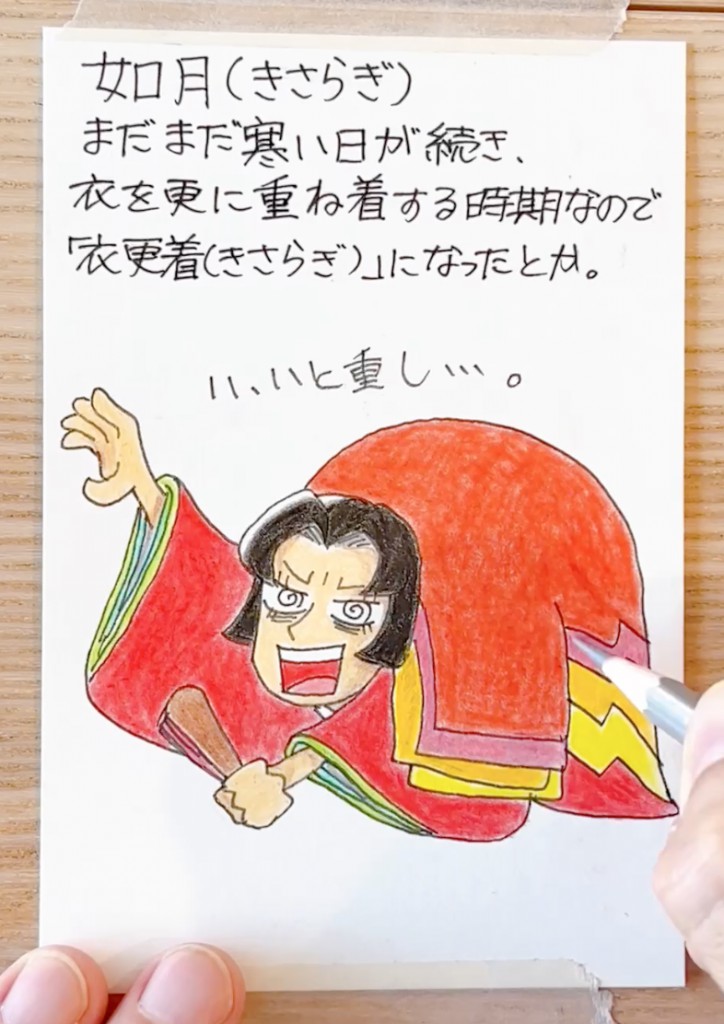 如月(きさらぎ)
まだまだ寒い日が続き、
衣を更に重ね着する時期なので
「衣更着(きさらぎ)」になったとか。
い、いと重し…。